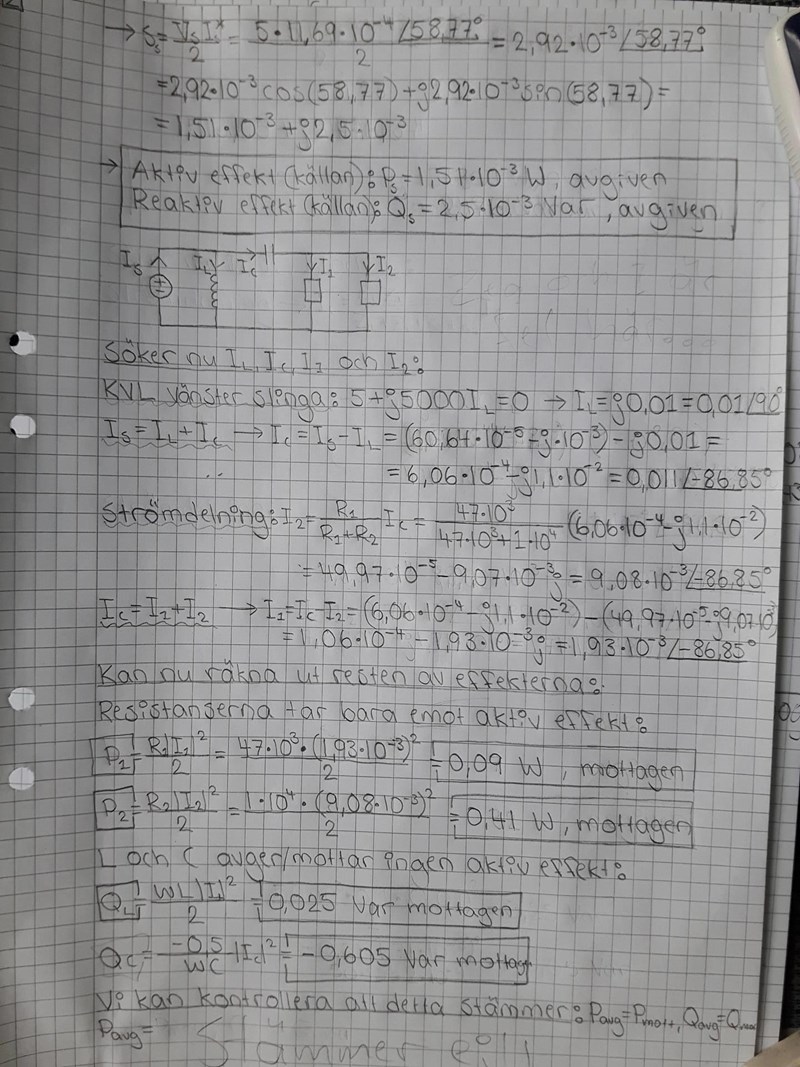 → S_s = V_s I*/2 = 5·11,69·10^-4 /58,77°/2 = 2,92·10^-3 /58,77°
= 2,92·10^-3 cos(58,77) + j2,92·10^-3 sin(58,77) =
= 1,51·10^-3 + j2,5·10^-3
→ Aktiv effekt (källan): P_s = 1,51·10^-3 W, avgiven
Reaktiv effekt (källan): Q_s = 2,5·10^-3 Var, avgiven
I_s I_L I_C I_1 I_2
Söker nu I_L, I_C, I_1 och I_2:
KVL vänster slinga: 5 + j5000 I_L = 0 → I_L = j0,01 = 0,01 /90°
I_s = I_L + I_C → I_C = I_s - I_L = (60,64·10^-5 - j·10^-3) - j0,01 =
= 6,06·10^-4 - j1,1·10^-2 = 0,011 /-86,85°
Strömdelning: I_2 = R_1/(R_1+R_2) I_C = 47·10^3/(47·10^3+1·10^4) (6,06·10^-4 - j1,1·10^-2)
= 49,97·10^-5 - 9,07·10^-3 j = 9,08·10^-3 /-86,85°
I_C = I_2 + I_2 → I_1 = I_C - I_2 = (6,06·10^-4 - j1,1·10^-2) - (49,97·10^-5 - j9,07·10^-3)
= 1,06·10^-4 - 1,93·10^-3 j = 1,93·10^-3 /-86,85°
Kan nu räkna ut resten av effekterna:
Resistanserna tar bara emot aktiv effekt:
P_1 = R_1|I_1|^2/2 = 47·10^3·(1,93·10^-3)^2/2 = 0,09 W, mottagen
P_2 = R_2|I_2|^2/2 = 1·10^4·(9,08·10^-3)^2/2 = 0,41 W, mottagen
L och C avger/mottar ingen aktiv effekt:
Q_L = WL|I_L|^2/2 = 0,025 Var mottagen
Q_C = -0,5/WC |I_C|^2 = -0,605 Var mottag
Vi kan kontrollera all detta stämmer: P_avg = P_mott, Q_avg = Q_mott
P_avg = Stämmer ej!!